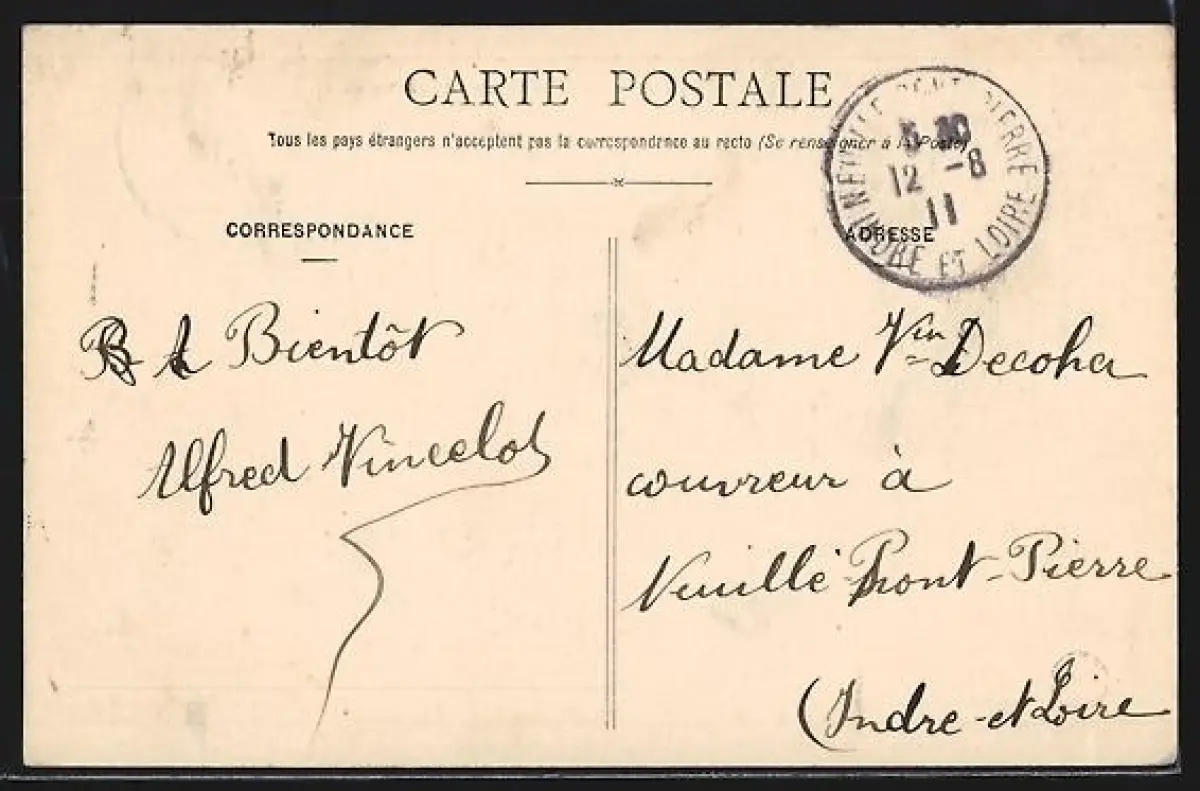 CARTE POSTALE
Tous les pays étrangers n'acceptent pas la correspondance au recto (Se renseigner à la Poste)
CORRESPONDANCE
ADRESSE
PONT PIERRE
5 30
12 -8
11
INDRE ET LOIRE
Bientôt
Alfred Vincelot
Madame Vin Decoha
couvreur à
Neuillé Pont-Pierre
(Indre-et Loire